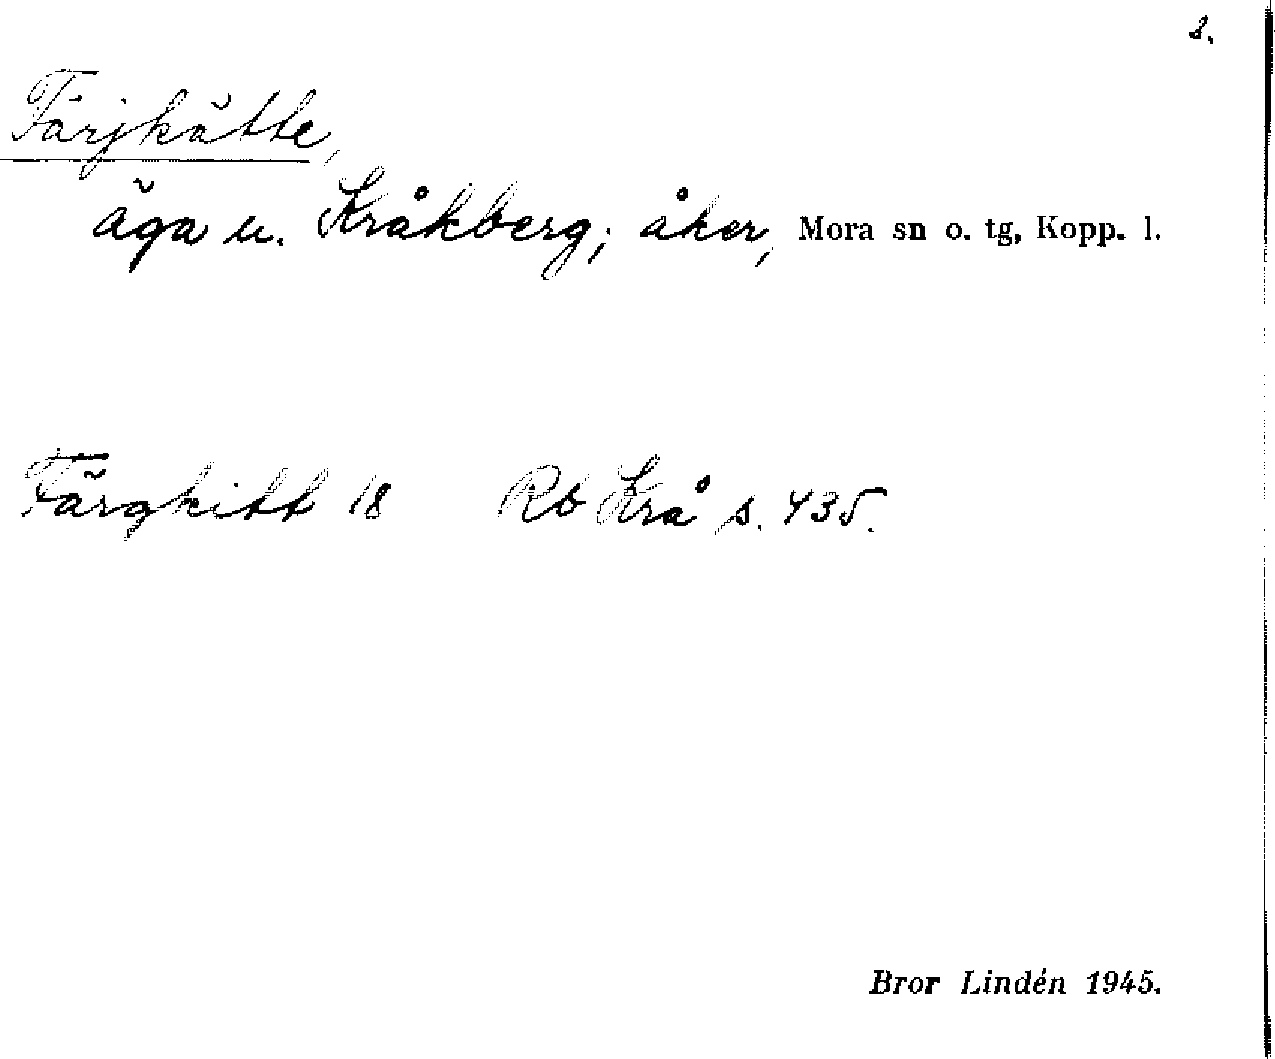 s.
Färjkätte,
äga u. Kråkberg; åker, Mora sn o. tg, Kopp. l.
Färgkitt 18 Rb Krå s. 435.
Bror Lindén 1945.